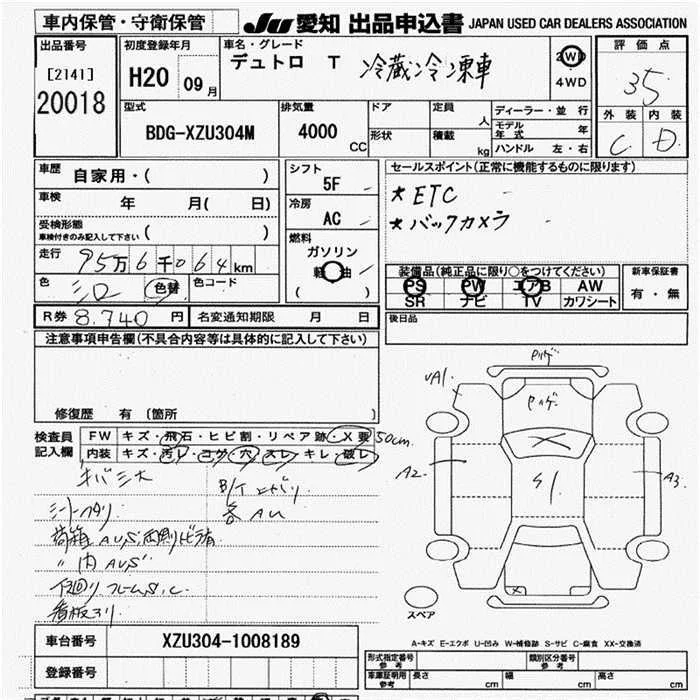 車内保管・守衛保管
JU 愛知 出品申込書 JAPAN USED CAR DEALERS ASSOCIATION
出品番号
[2141]
20018
初度登録年月
H20 09月
車名・グレード
デュトロ T 冷蔵冷凍車
2WD
4WD
評価点
35
外装 内装
C D
型式
BDG-XZU304M
排気量
4000 CC
ドア
形状
定員 人
積載 kg
ディーラー・並行
モデル年式 年
ハンドル 左・右
車歴 自家用・( )
車検 年 月( 日)
受検形態
車検付きのみ記入して下さい ( )
走行 95万6千064km
色 シロ 色替 色コード
シフト 5F
冷房 AC
燃料
ガソリン
軽油
( )
セールスポイント(正常に機能するものに限ります)
★ETC
★バックカメラ
装備品(純正品に限り○をつけてください)
PS PW エアB AW
SR ナビ TV カワシート
新車保証書
有・無
R券 8,740円 名変通知期限 月 日
後日品
注意事項申告欄(不具合内容等は具体的に記入して下さい)
修復歴 有 〔箇所 〕
検査員記入欄
FW キズ・飛石・ヒビ割・リペア跡・X要 50cm
内装 キズ・汚レ・コゲ・穴・スレ・キレ・破レ
シートヘタリ
各AU
荷箱AU,S,両側トビラ有
〃内AUS
下回リフレームS,C
看板アリ
UA1
A2
S1
A3
スペア
A-キズ E-エクボ U-凹み W-補修跡 S-サビ C-腐食 XX-交換済
車台番号 XZU304-1008189
登録番号
形式指定番号 参考
類別区分番号 参考
車庫証明用 参考
長さ cm 幅 cm 高さ cm